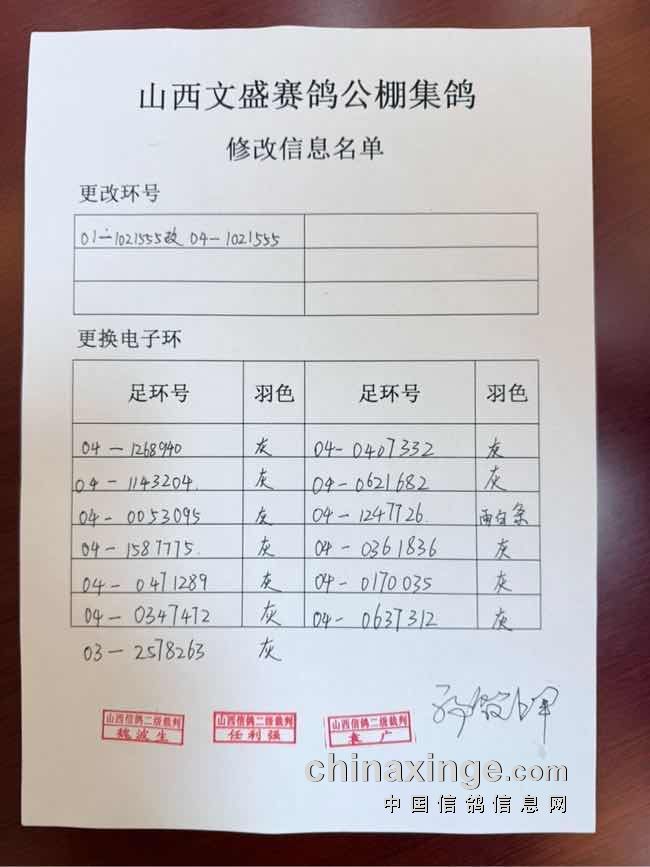 山西文盛赛鸽公棚集鸽
修改信息名单
更改环号
01-1021555改 04-1021555
更换电子环
足环号 羽色 足环号 羽色
04-1268940 灰 04-0407332 灰
04-1143204. 灰 04-0621682 灰
04-0053095 灰 04-1247726. 雨白条
04-1587775. 灰 04-0361836 灰
04-0471289 灰 04-0170035 灰
04-0347472 灰 04-0637312 灰
03-2578263 灰
山西信鸽二级裁判 山西信鸽二级裁判 山西信鸽二级裁判
魏波生 任利强 袁广
chinaxinge.com
中国信鸽信息网